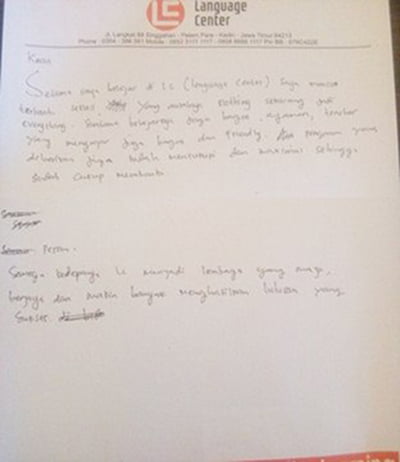 Language
Center
Jl. Langkat 88 Singgahan - Pelem, Pare - Kediri - Jawa Timur 64213
Kesan
Selama saya belajar di LC (Language Center) saya merasa
terbantu sekali yang awalnya nothing sekarang jadi
everything. Suasana belajarnya juga bagus, nyaman, teacher
yang mengajar juga bagus dan friendly. program yang
diberikan juga sudah dan sehingga
sudah cukup membantu
Pesan.
Semoga kedepannya LC menjadi lembaga yang maju,
berjaya dan makin banyak menghasilkan lulusan yang
sukses.